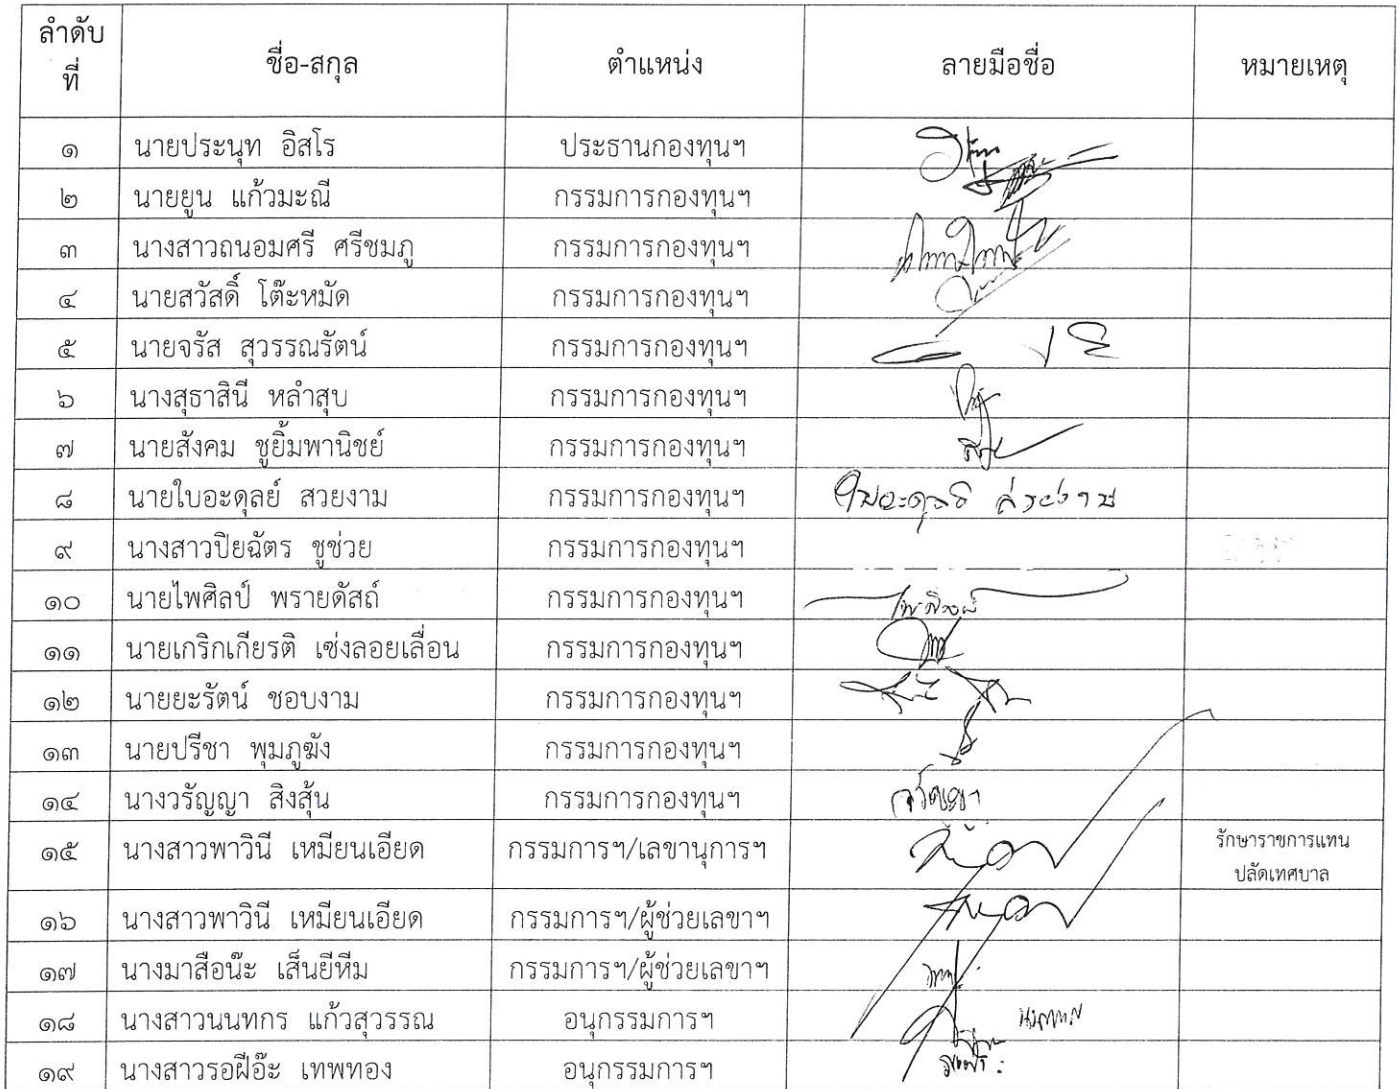 ลำดับที่ ชื่อ-สกุล ตำแหน่ง ลายมือชื่อ หมายเหตุ
๑ นายประนุท อิสโร ประธานกองทุนฯ
๒ นายยูน แก้วมะณี กรรมการกองทุนฯ
๓ นางสาวถนอมศรี ศรีชมภู กรรมการกองทุนฯ
๔ นายสวัสดิ์ โต๊ะหมัด กรรมการกองทุนฯ
๕ นายจรัส สุวรรณรัตน์ กรรมการกองทุนฯ
๖ นางสุธาสินี หลำสุบ กรรมการกองทุนฯ
๗ นายสังคม ชูยิ้มพานิชย์ กรรมการกองทุนฯ
๘ นายใบอะดุลย์ สวยงาม กรรมการกองทุนฯ ใบอะดุลย์ สวยงาม
๙ นางสาวปิยฉัตร ชูช่วย กรรมการกองทุนฯ
๑๐ นายไพศิลป์ พรายดัสถ์ กรรมการกองทุนฯ ไพศิลป์
๑๑ นายเกริกเกียรติ เซ่งลอยเลื่อน กรรมการกองทุนฯ
๑๒ นายยะรัตน์ ชอบงาม กรรมการกองทุนฯ
๑๓ นายปรีชา พุมภูฆัง กรรมการกองทุนฯ
๑๔ นางวรัญญา สิงสุ้น กรรมการกองทุนฯ วรัญญา
๑๕ นางสาวพาวินี เหมียนเอียด กรรมการฯ/เลขานุการฯ รักษาราชการแทน
ปลัดเทศบาล
๑๖ นางสาวพาวินี เหมียนเอียด กรรมการฯ/ผู้ช่วยเลขาฯ
๑๗ นางมาสือน๊ะ เส็นยีหีม กรรมการฯ/ผู้ช่วยเลขาฯ
๑๘ นางสาวนนทกร แก้วสุวรรณ อนุกรรมการฯ
๑๙ นางสาวรอฝีอ๊ะ เทพทอง อนุกรรมการฯ